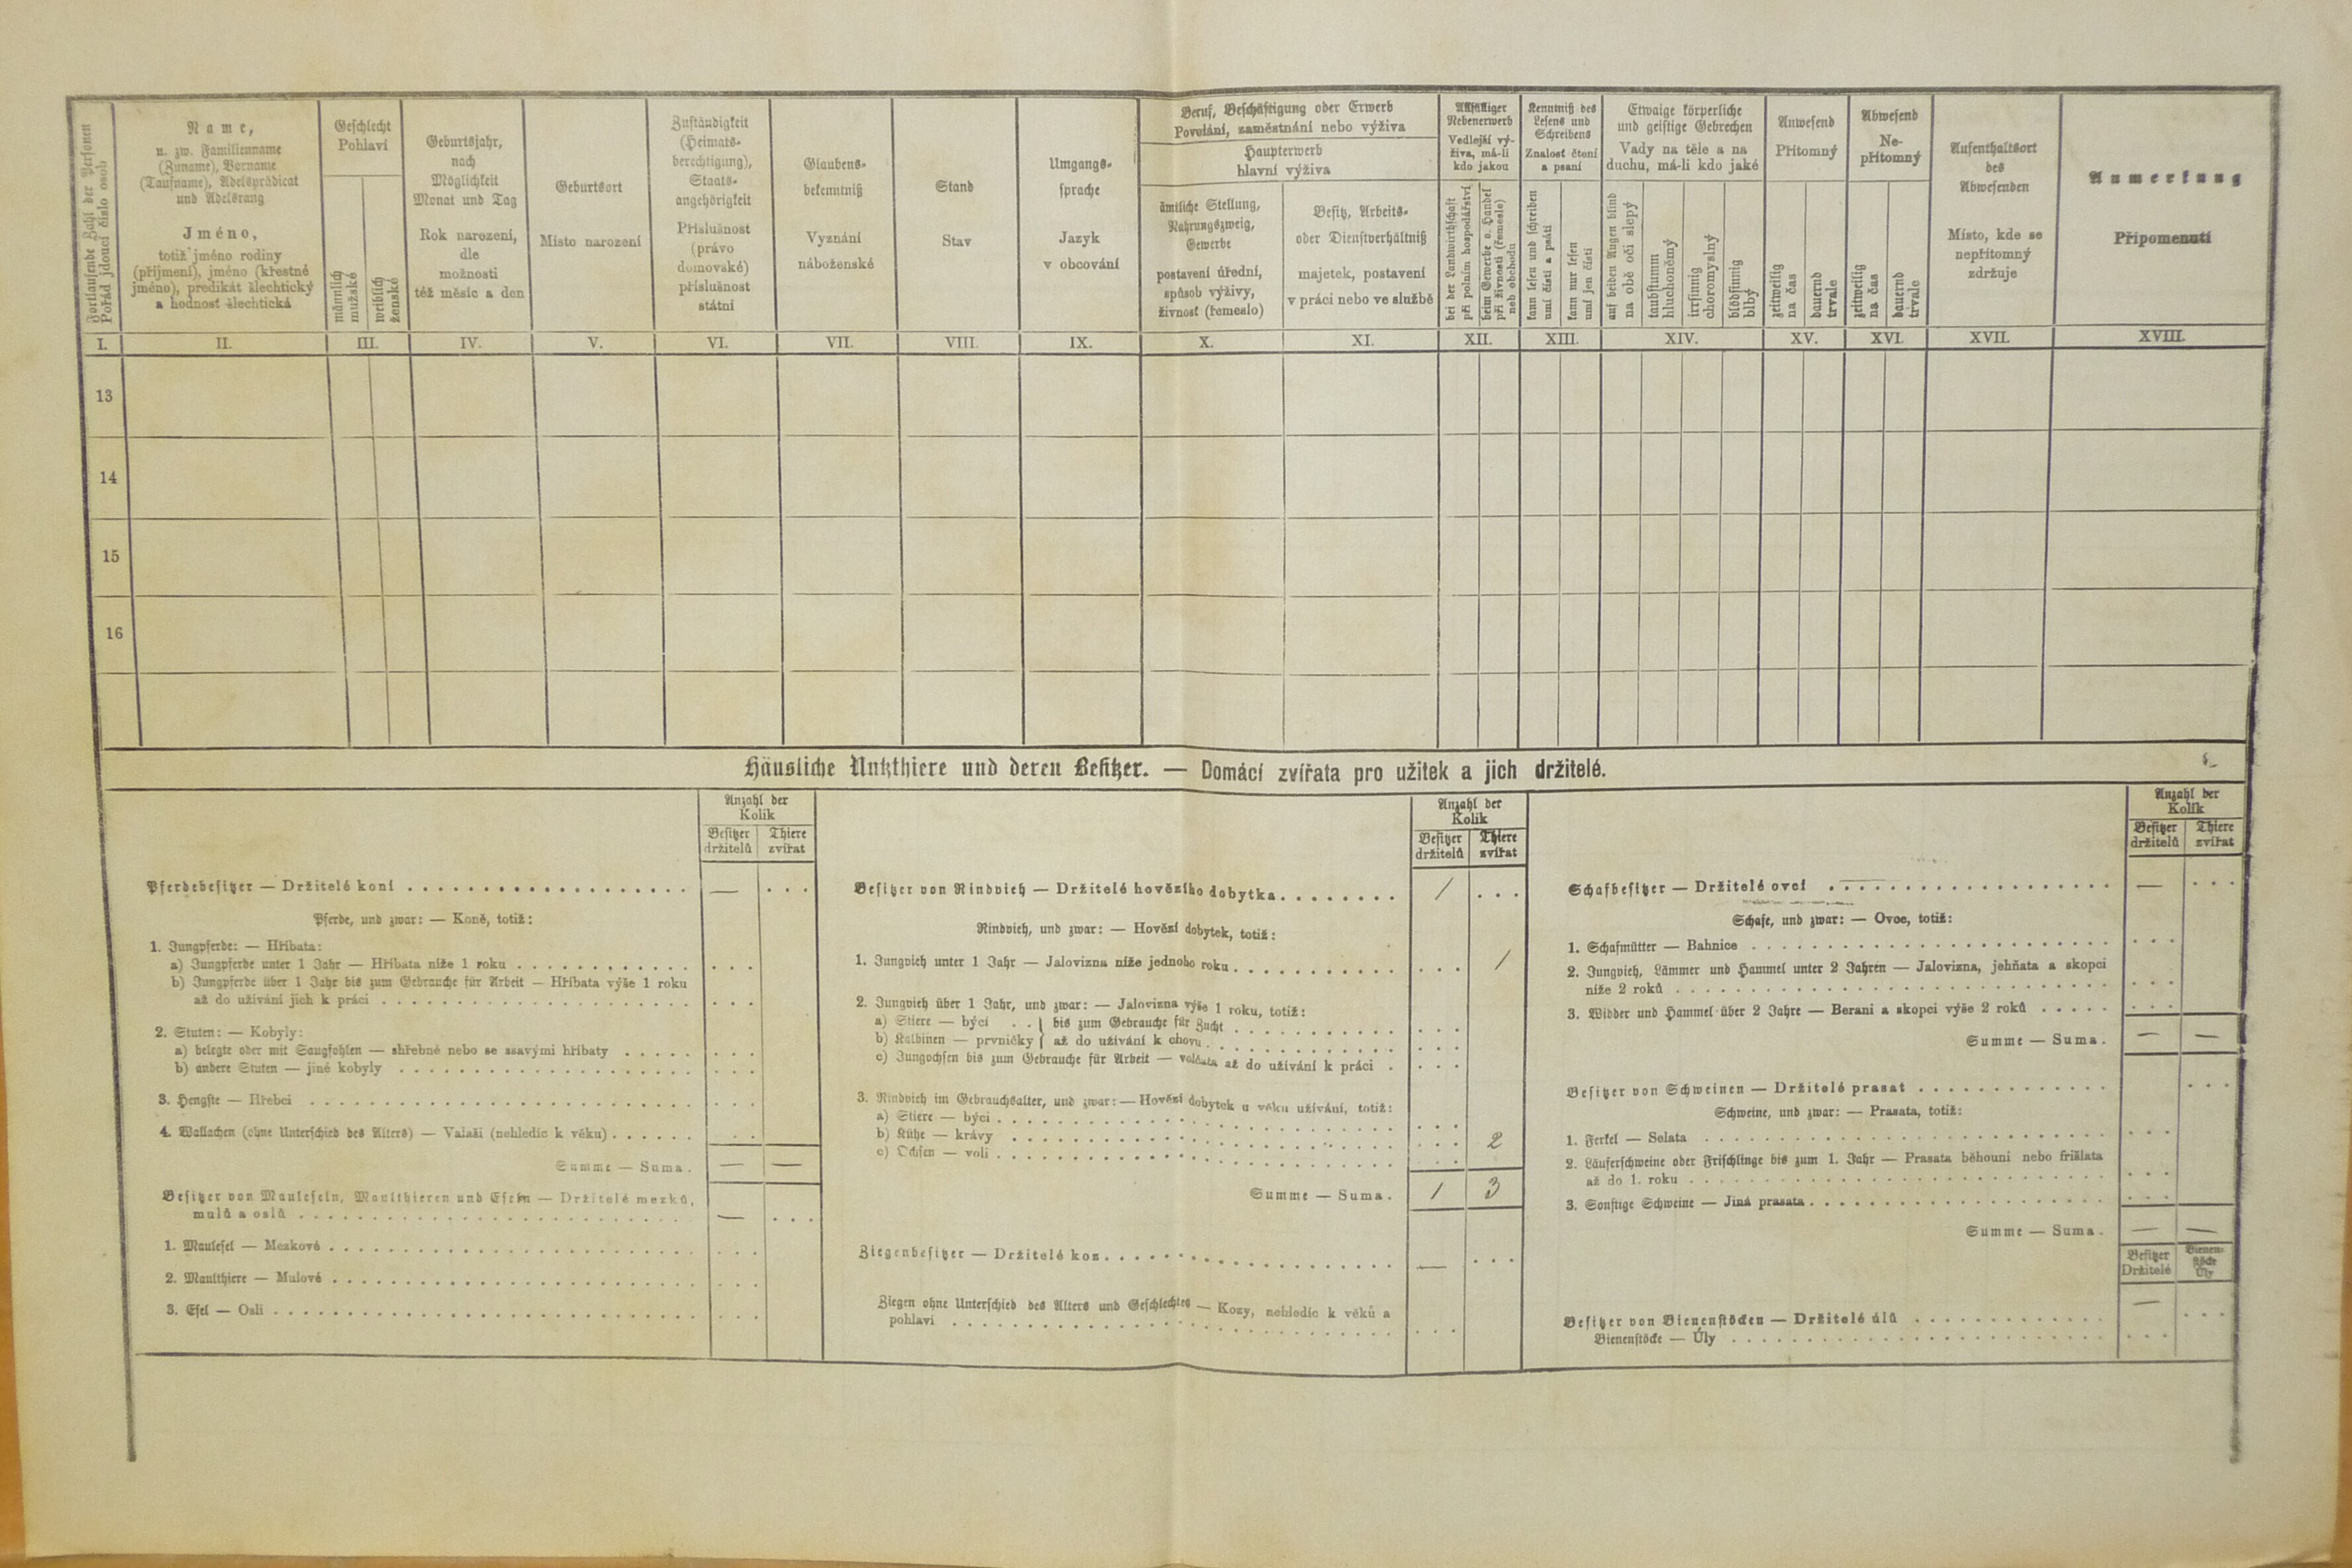 Fortlaufende Zahl der Personen
Pořád jdoucí číslo osob
Name,
u. zw. Familienname
(Zuname), Vorname
(Taufname), Adelsprädicat
und Adelsrang
Jméno,
totiž jméno rodiny
(příjmení), jméno (křestné
jméno), predikát šlechtický
a hodnosť šlechtická
Geschlecht
Pohlaví
männlich
mužské
weiblich
ženské
Geburtsjahr,
nach
Möglichkeit
Monat und Tag
Rok narození,
dle
možnosti
též měsíc a den
Geburtsort
Místo narození
Zuständigkeit
(Heimats-
berechtigung),
Staats-
angehörigkeit
Příslušnost
(právo
domovské)
příslušnost
státní
Glaubens-
bekenntniß
Vyznání
náboženské
Stand
Stav
Umgangs-
sprache
Jazyk
v obcování
Beruf, Beschäftigung oder Erwerb
Povolání, zaměstnání nebo výživa
Haupterwerb
hlavní výživa
ämtliche Stellung,
Nahrungszweig,
Gewerbe
postavení úřední,
spůsob výživy,
živnosť (řemeslo)
Besitz, Arbeits-
oder Dienstverhältniß
majetek, postavení
v práci nebo ve službě
Allfälliger
Nebenerwerb
Vedlejší vý-
živa, má-li
kdo jakou
bei der Landwirthschaft
při polním hospodářství
beim Gewerbe o. Handel
při živnosti (řemesle)
neb obchodu
Kenntniß des
Lesens und
Schreibens
Znalosť čtení
a psaní
kann lesen und schreiben
umí čísti a psáti
kann nur lesen
umí jen čísti
Etwaige körperliche
und geistige Gebrechen
Vady na těle a na
duchu, má-li kdo jaké
auf beiden Augen blind
na obě oči slepý
taubstumm
hluchoněmý
irrsinnig
choromyslný
blödsinnig
blbý
Anwesend
Přítomný
zeitweilig
na čas
dauernd
trvale
Abwesend
Ne-
přítomný
zeitweilig
na čas
dauernd
trvale
Aufenthaltsort
des
Abwesenden
Místo, kde se
nepřítomný
zdržuje
Anmerkung
Připomenutí
I. II. III. IV. V. VI. VII. VIII. IX. X. XI. XII. XIII. XIV. XV. XVI. XVII. XVIII.
13
14
15
16
Häusliche Nutzthiere und deren Besitzer. — Domácí zvířata pro užitek a jich držitelé.
Anzahl der
Kolik
Besitzer
držitelů
Thiere
zvířat
Pferdebesitzer — Držitelé koní . . . — . . .
Pferde, und zwar: — Koně, totiž:
1. Jungpferde: — Hříbata:
a) Jungpferde unter 1 Jahr — Hříbata níže 1 roku . . .
b) Jungpferde über 1 Jahr bis zum Gebrauche für Arbeit — Hříbata výše 1 roku
až do užívání jich k práci . . .
2. Stuten: — Kobyly:
a) belegte oder mit Saugfohlen — shřebné nebo se ssavými hříbaty . . .
b) andere Stuten — jiné kobyly . . .
3. Hengste — Hřebci . . .
4. Wallachen (ohne Unterschied des Alters) — Valaši (nehledíc k věku) . . .
Summe — Suma. — —
Besitzer von Mauleseln, Maulthieren und Eseln — Držitelé mezků,
mulů a oslů . . . — . . .
1. Maulesel — Mezkové . . .
2. Maulthiere — Mulové . . .
3. Esel — Osli . . .
Anzahl der
Kolik
Besitzer
držitelů
Thiere
zvířat
Besitzer von Rindvieh — Držitelé hovězího dobytka . . . 1 . . .
Rindvieh, und zwar: — Hovězí dobytek, totiž:
1. Jungvieh unter 1 Jahr — Jalovizna níže jednoho roku . . . 1
2. Jungvieh über 1 Jahr, und zwar: — Jalovizna výše 1 roku, totiž:
a) Stiere — býci . . } bis zum Gebrauche für Zucht . . .
b) Kalbinen — prvničky } až do užívání k chovu . . .
c) Jungochsen bis zum Gebrauche für Arbeit — volčata až do užívání k práci . . .
3. Rindvieh im Gebrauchsalter, und zwar: — Hovězí dobytek u věku užívání, totiž:
a) Stiere — býci . . .
b) Kühe — krávy . . . 2
c) Ochsen — voli . . .
Summe — Suma. 1 3
Ziegenbesitzer — Držitelé koz . . . — . . .
Ziegen ohne Unterschied des Alters und Geschlechtes — Kozy, nehledíc k věků a
pohlaví . . .
Anzahl der
Kolik
Besitzer
držitelů
Thiere
zvířat
Schafbesitzer — Držitelé ovcí . . . — . . .
Schafe, und zwar: — Ovce, totiž:
1. Schafmütter — Bahnice . . .
2. Jungvieh, Lämmer und Hammel unter 2 Jahren — Jalovizna, jehňata a skopci
níže 2 roků . . .
3. Widder und Hammel über 2 Jahre — Berani a skopci výše 2 roků . . .
Summe — Suma. — —
Besitzer von Schweinen — Držitelé prasat . . .
Schweine, und zwar: — Prasata, totiž:
1. Ferkel — Selata . . .
2. Läuferschweine oder Frischlinge bis zum 1. Jahr — Prasata běhouni nebo frišlata
až do 1. roku . . .
3. Sonstige Schweine — Jiná prasata . . .
Summe — Suma. — —
Besitzer
Držitelé
Bienen-
stöcke
Úly
Besitzer von Bienenstöcken — Držitelé úlů . . . — . . .
Bienenstöcke — Úly . . .